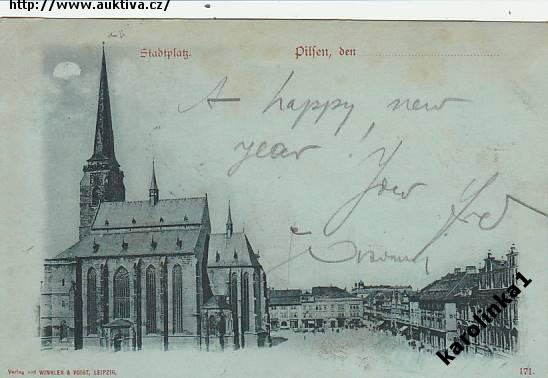 http://www.auktiva.cz/
Stadtplatz.
Pilsen, den
A happy new
year!
karolinka1
Verlag von WINKLER & VOIGT, LEIPZIG.
171.